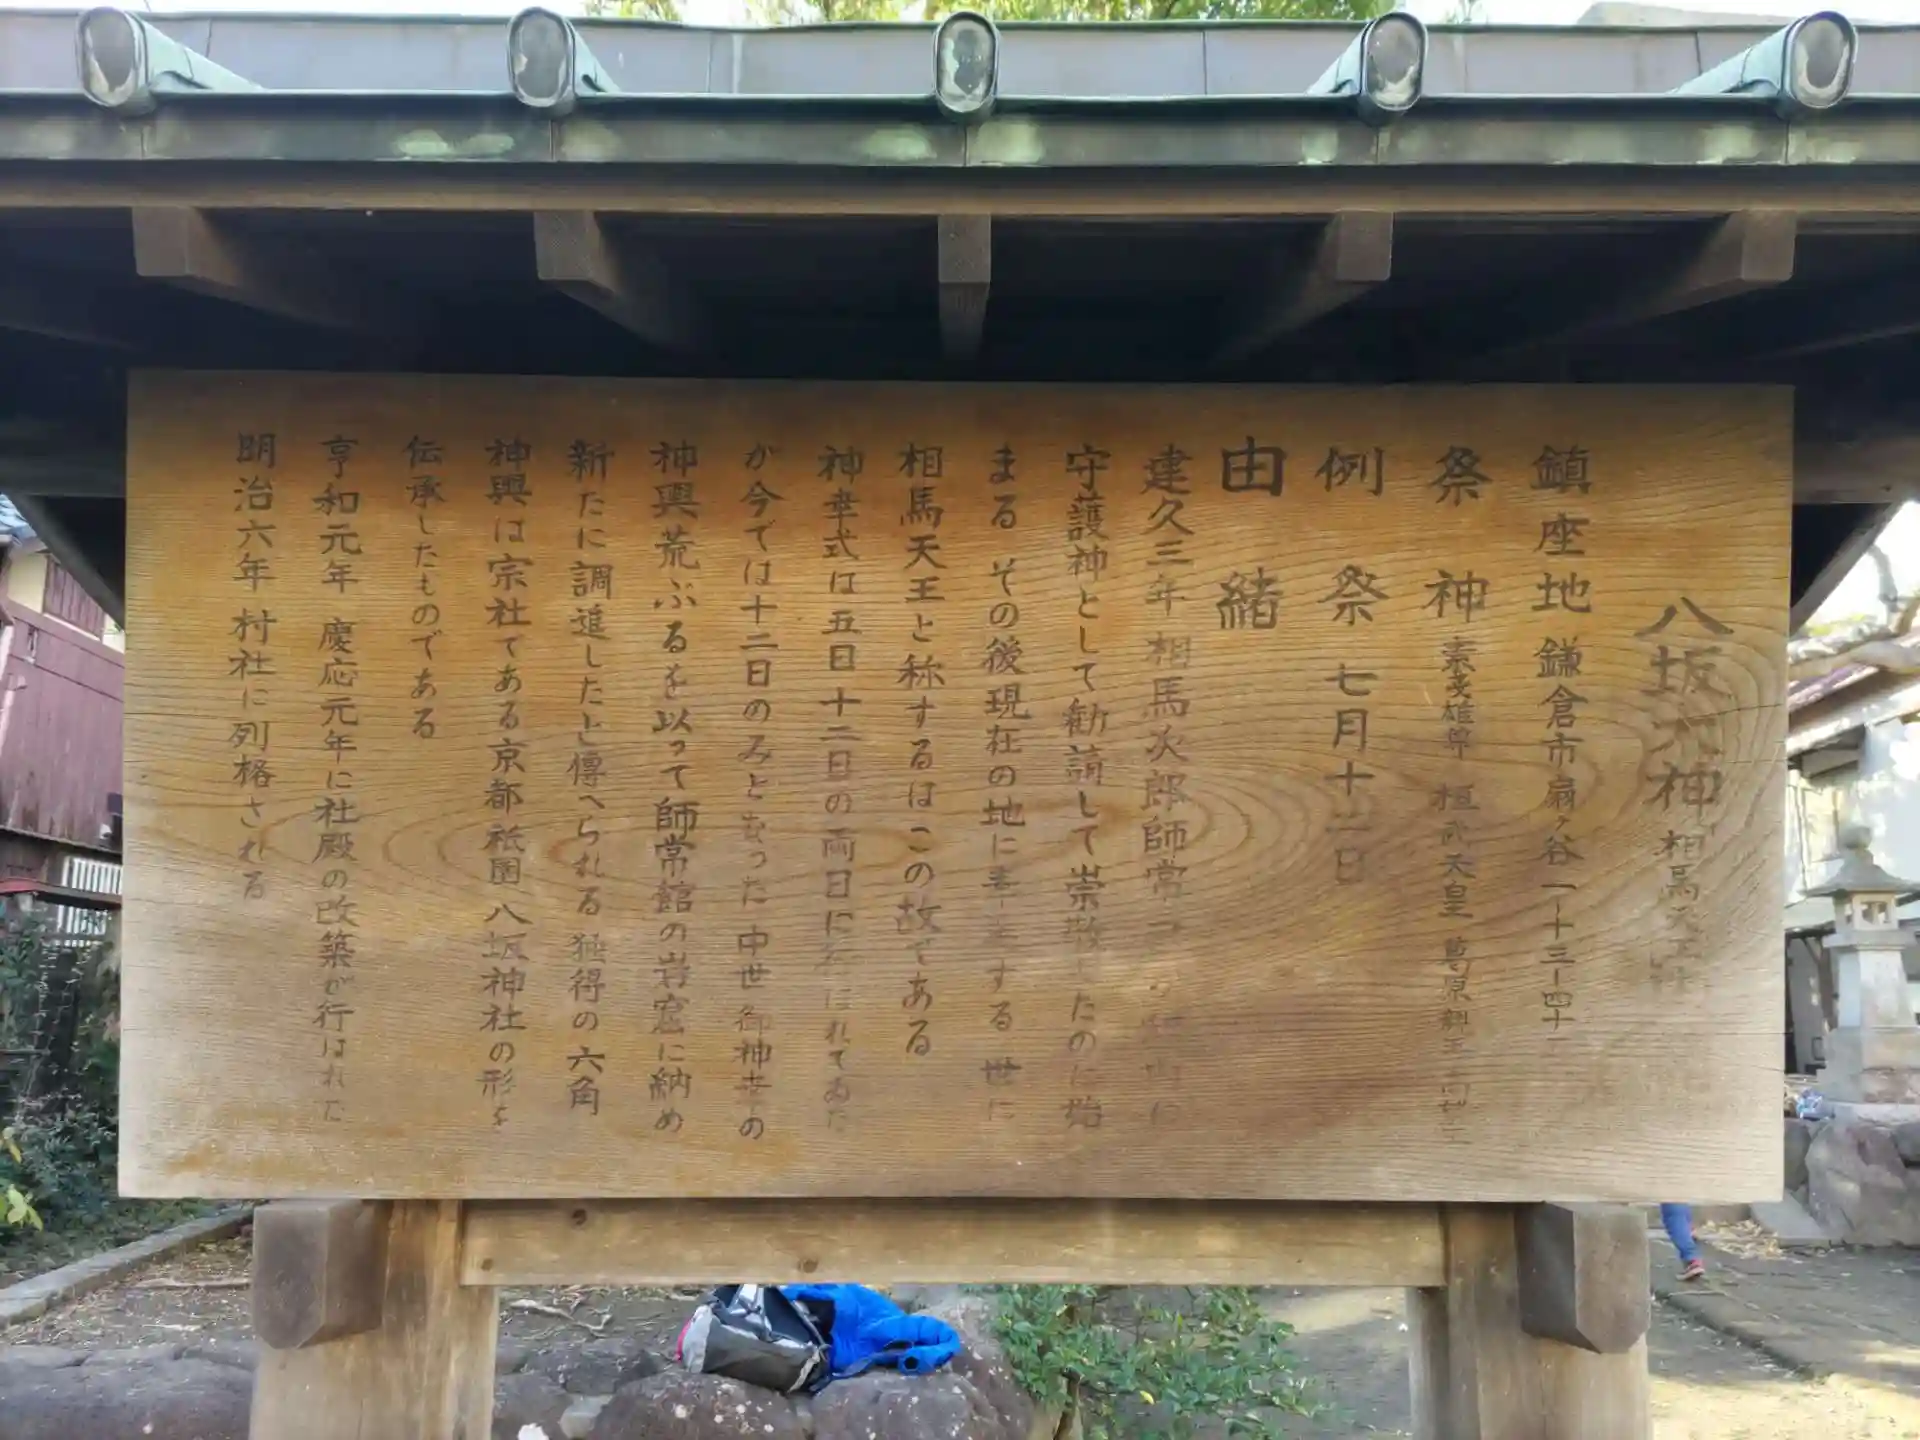 八坂大神 相馬天王
鎮座地 鎌倉市扇ヶ谷一ー十三ー四十
祭神 素戔雄尊 桓武天皇 葛原親王 高望王
例祭 七月十二日
由緒
建久三年 相馬次郎師常
守護神として勧請して崇敬したのに始
まる その後現在の地に する 世に
相馬天王と称するはこの故である
神幸式は五日十二日の両日に
が今では十二日のみとなった 中世 御神幸の
神輿荒ぶるを以って師常館の岩窟に納め
新たに調進したと傳へられる 独得の 六角
神輿は宗社てある京都祇園 八坂神社の形を
伝承したものである
享和元年 慶応元年に社殿の改築が行はれた
明治六年 村社に列格される